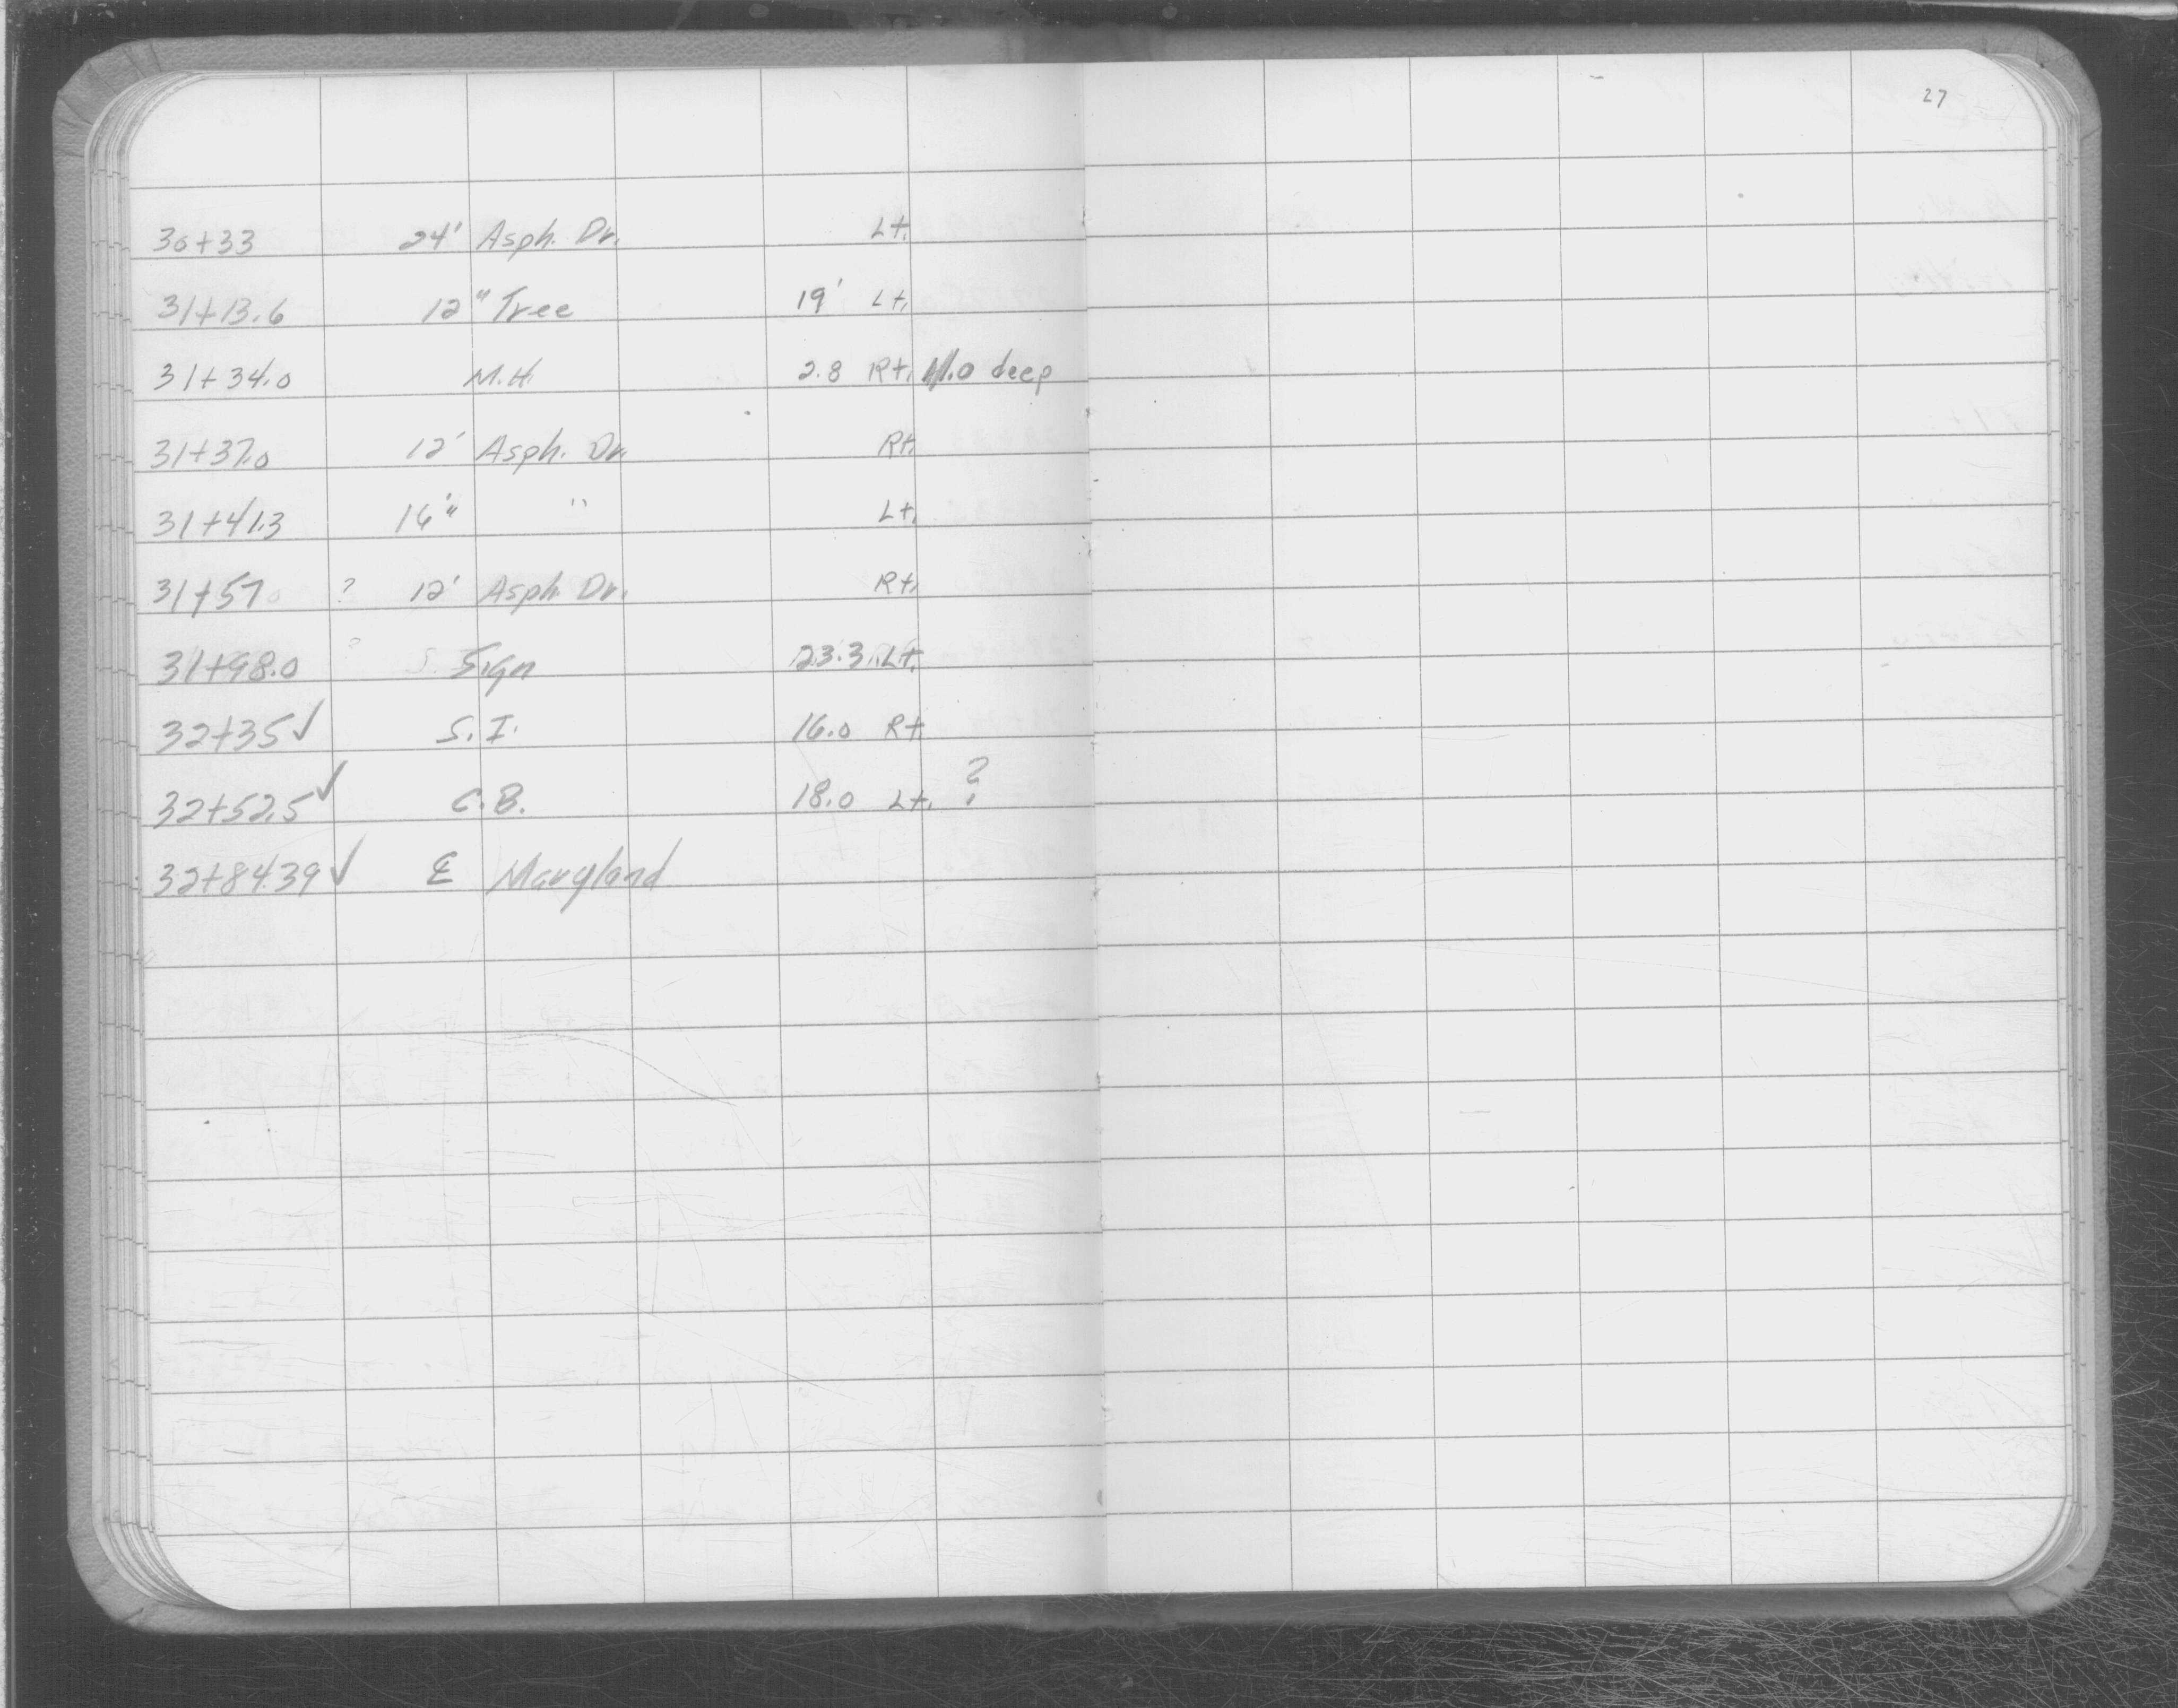 27
30+33 24' Asph. Dr. Lt.
31+13.6 12" Tree 19' Lt.
31+34.0 M.H. 2.8 Rt. 11.0 deep
31+37.0 12' Asph. Dr. Rt.
31+41.3 16' " " Lt.
31+57 ? 12' Asph. Dr. Rt.
31+98.0 ? Sign 23.3 Lt.
32+35 ✓ S.I. 16.0 Rt.
32+52.5 ✓ C.B. 18.0 Lt. ?
32+84.39 ✓ ℄ Maryland